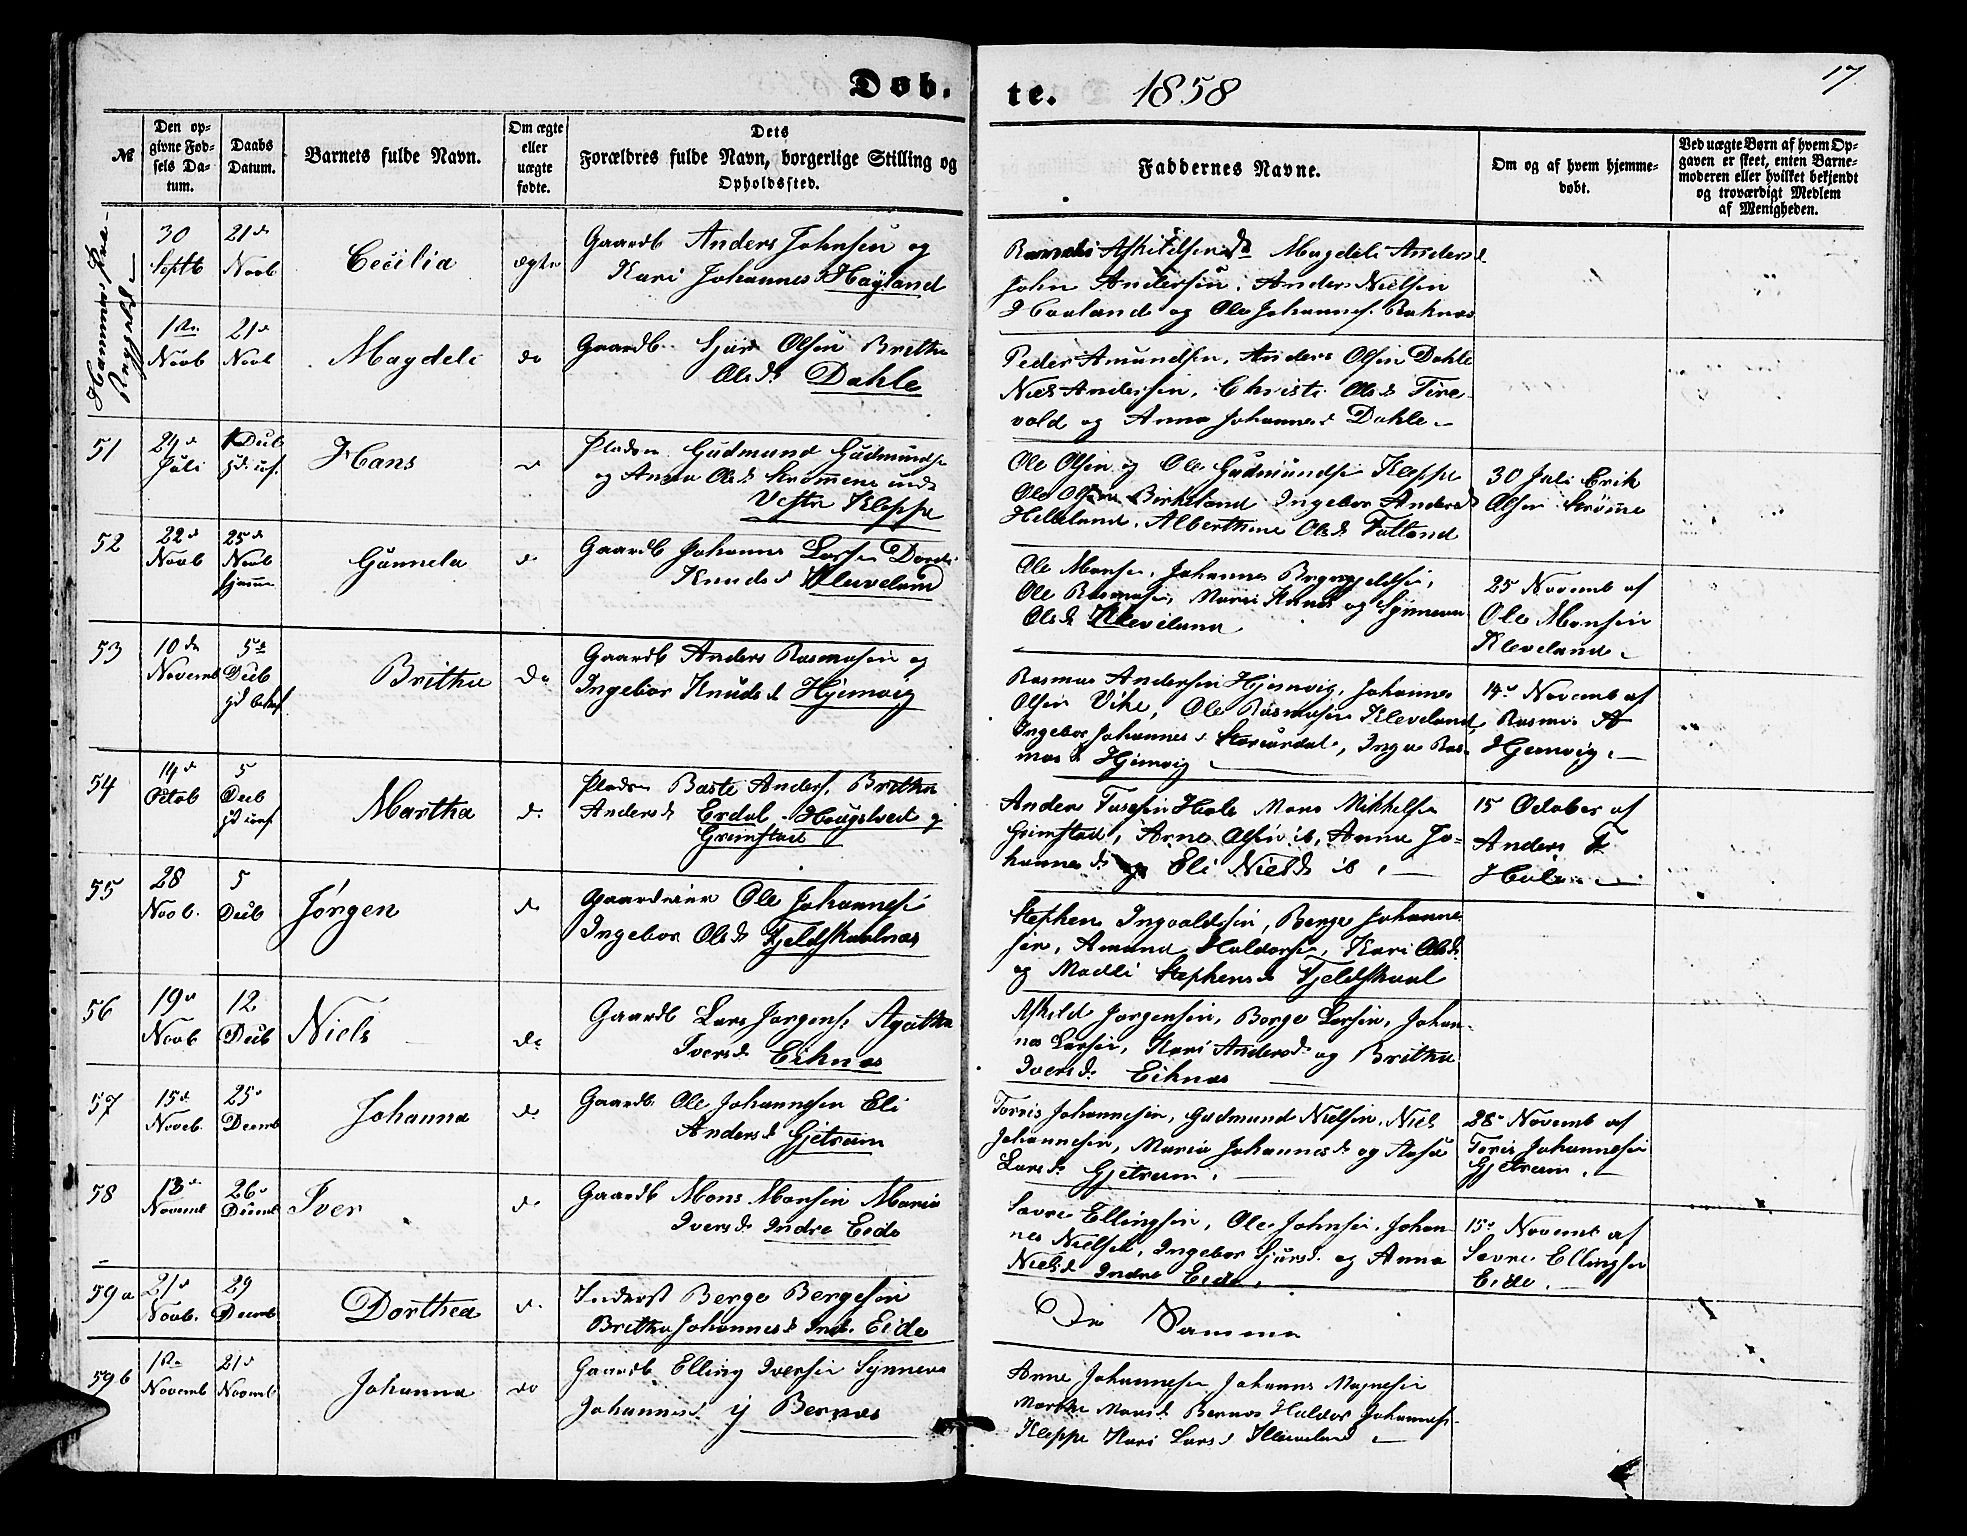 Døb-
te. 1858
17
№
Den op-
givne Fød-
sels Da-
tum.
Daabs
Datum.
Barnets fulde Navn.
Om ægte
eller
uægte
fødte.
Dets
Forældres fulde Navn, borgerlige Stilling og
Opholdssted.
Faddernes Navne.
Om og af hvem hjemme-
døbt.
Ved uægte Børn af hvem Op-
gaven er skeet, enten Barne-
moderen eller hvilket bekjendt
og troværdigt Medlem
af Menigheden.
30 Septb
21d Novb
Cecilia
ægte
Gaardb Anders Johnsen og
Kari Johannesd Høyland
Magdeli Andersd
John Andersen, Anders Nielsen
og Ole Johannes
1ste Novb
21d Novb
Magdeli
do
Gaardb. Sjur Olsen Britha
Olsd Dahle
Peder Amundsen, Anders Olsen Dahle
Niels Andersen, Christi Olsd Tire-
vold og Anna Johannesd Dahle
51
29d Juli
Hans
d
Pladsm Gudmund Gudmunds
og Anna Olsd
Vestre Kleppe
Ole Olsen og Ole Gudmunds Kleppe
Ole Olsen Birkeland Ingebor Andersd
Helleland, Alberthine Olsd Fatland
30 Juli Erik
Olsen Strømme
52
22d Novb
25d Novb hjemme
Gunnela
d
Gaardb Johannes Larsen Dordi
Knudsd Kleveland
Ole Monsen, Johannes
Ole Rasmussen, og Synneva
Olsd Kleveland
25 Novemb af
Ole Monsen
Kleveland
53
10de Novemb
5te Decb
Britha
do
Gaardb Anders Rasmusen og
Ingebor Knudsd Hjemvig
Rasmus Andersen Hjemvig, Johannes
Olsen Vike, Ole Rasmusen Kleveland
Ingebor Johannesd, Inga Ras-
musd Hjemvig
14d Novemb af
Rasmus A
Hjemvig
54
14d Octob
5 Decb
Martha
d.
Pladsm Baste Anders. Britha
Andersd Erdal Hougstvedt og
Grimstad
Anders Hole Mons Mikkelsen
Grimstad, Arne Olsen ib, Anna Jo-
hannesd og Eli Nielsd ib
15 October af
Anders T
Hole
55
28 Novb.
5 Decb
Jørgen
d
Gaardeier Ole Johannes
Ingebor Olsd Fjeldskaalnæs
Stephen Ingvaldsen, Berge Johanne
sen, Amund Haldors, Kari Olsd
og Madli Stephensd Fjeldskaal
56
19d Novb
12 Decb
Niels
do
Gaardb Lars Jørgens. Agatha
Iversd Eiknæs
Askild Jørgensen, Borge Larsen, Johan-
nes Larsen, Kari Andersd og Britha
Iversd Eiknæs
57
15d Noveb.
25d Decmb
Johanna
d.
Gaardb. Ole Johannesen Eli
Andersd Gjetrem
Torris Johannesen, Gudmund Nielsen, Niels
Johannesen, Maria Johannesd og Aasa
Larsd Gjetrem.
28d Novemb af
Toris Johannesen
Gjetrem.
58
13d Novemb
26d Decmb
Iver
d
Gaardb Mons Monsen Maria
Iversd Indre Eide
Sevre Ellingsen, Ole Johnsen, Johan
nes Nielsen, Ingebor Sjursd og Anna
Nielsd Indre Eide.
15d Novemb af
Sevre Ellingsen
Eide.
59a
21d Novb.
29 Decmb
Dorthea
d.
Inderst Berge Bergesen
Britha Johannesd Ind. Eide
De Samme
59b
1ste Novemb
21d Novemb
Johanna
do
Gaardb Elling Iversen Synneva
Johannesd Bernæs
Arne Johannesen Johannes Magnesen
Marthe Monsd Bernæs Haldor Johannes
Kleppe Kari Larsd Kleveland